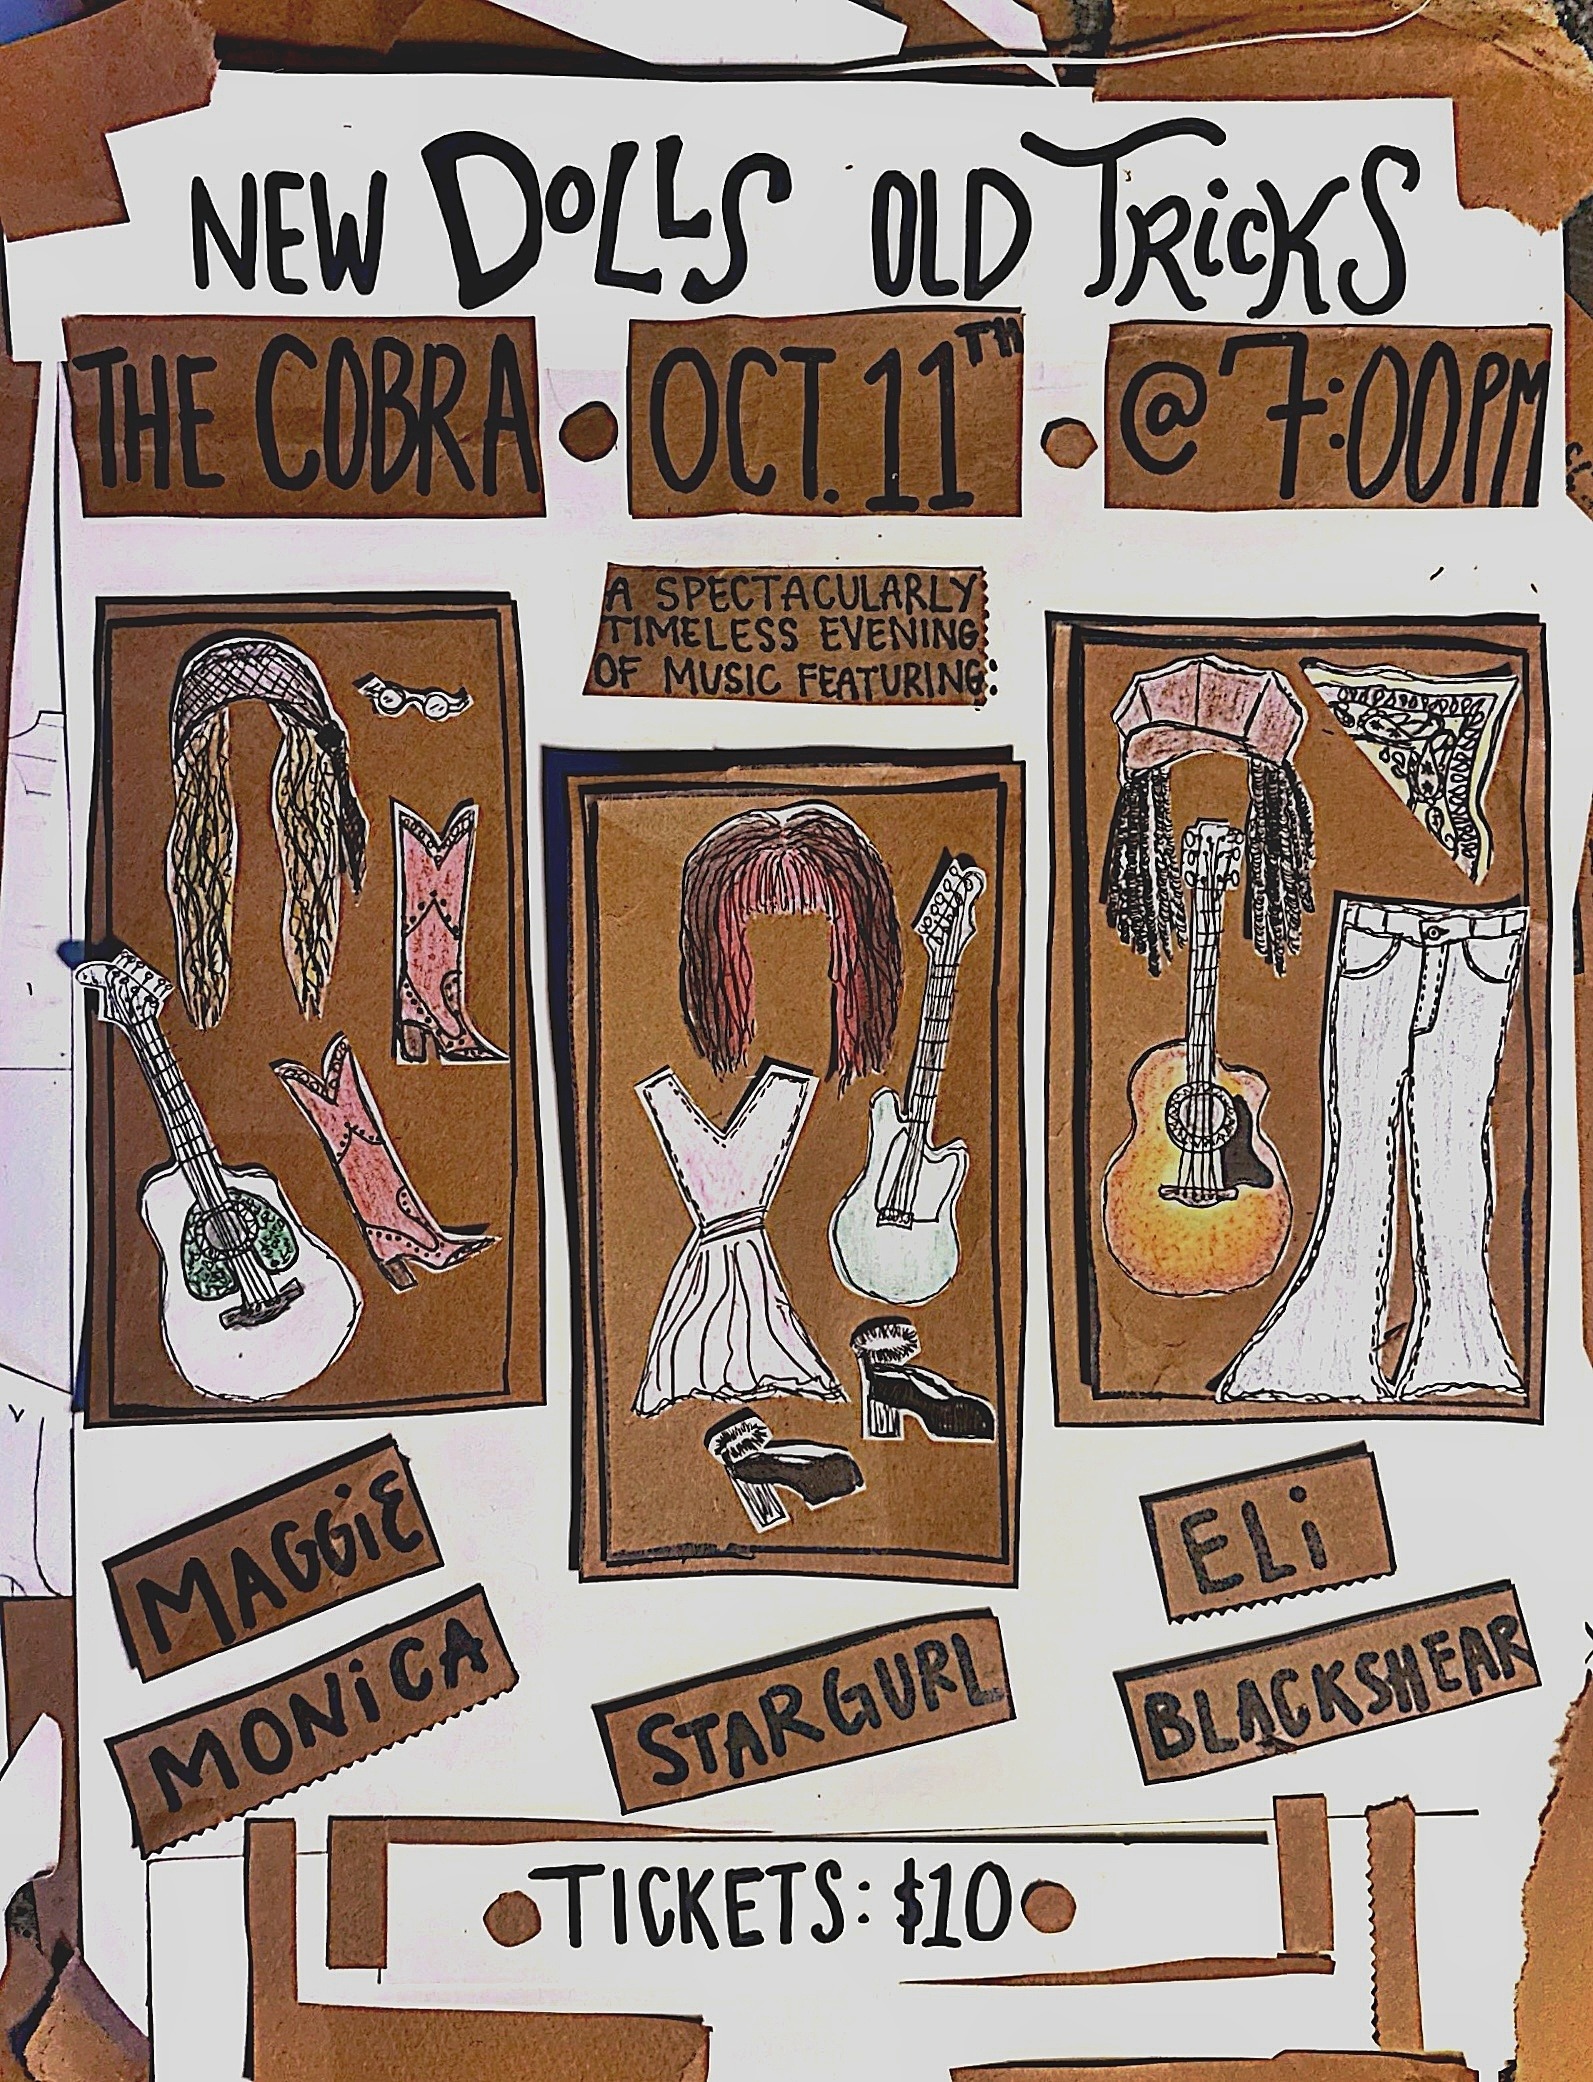 NEW DOLLS OLD TRICKS
THE COBRA • OCT. 11TH • @ 7:00PM
A SPECTACULARLY
TIMELESS EVENING
OF MUSIC FEATURING:
MAGGIE
MONICA
STARGURL
ELI
BLACKSHEAR
TICKETS: $10